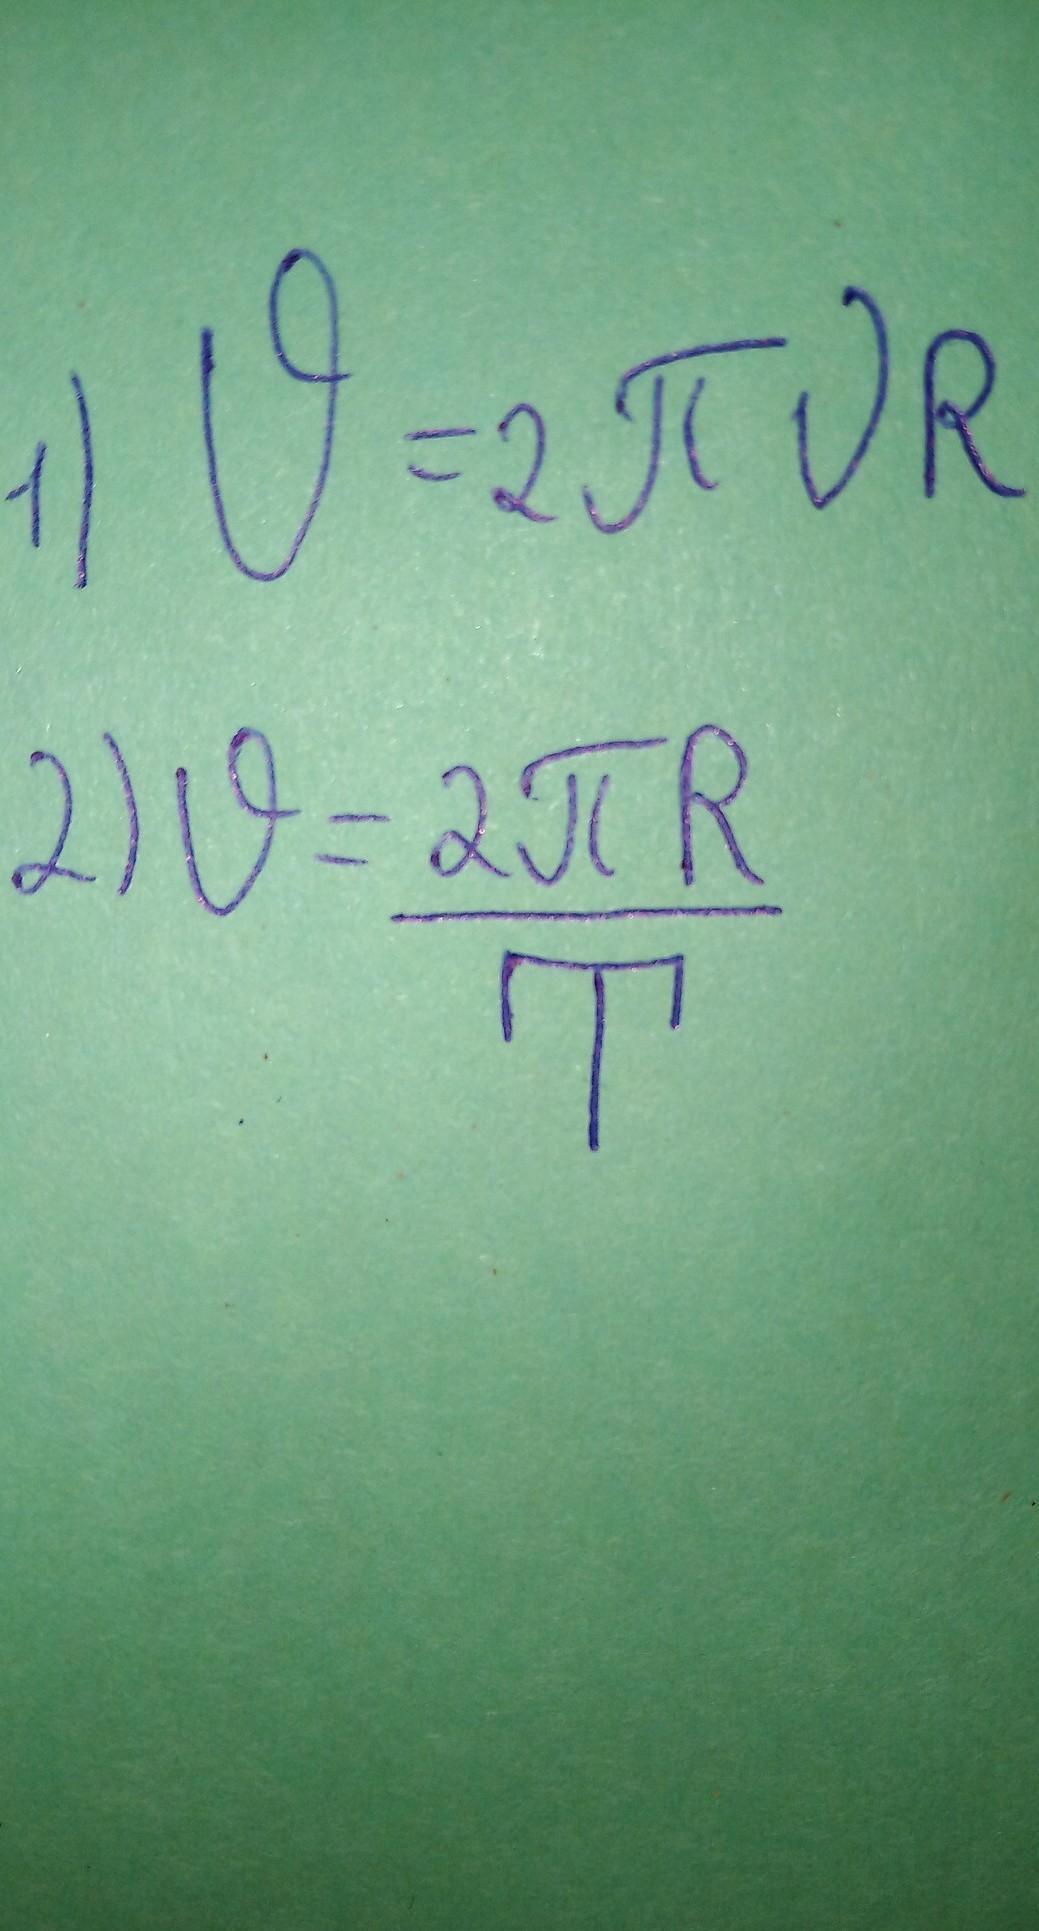 1) 𝜗 = 2πνR
2) 𝜗 = 2πR
T